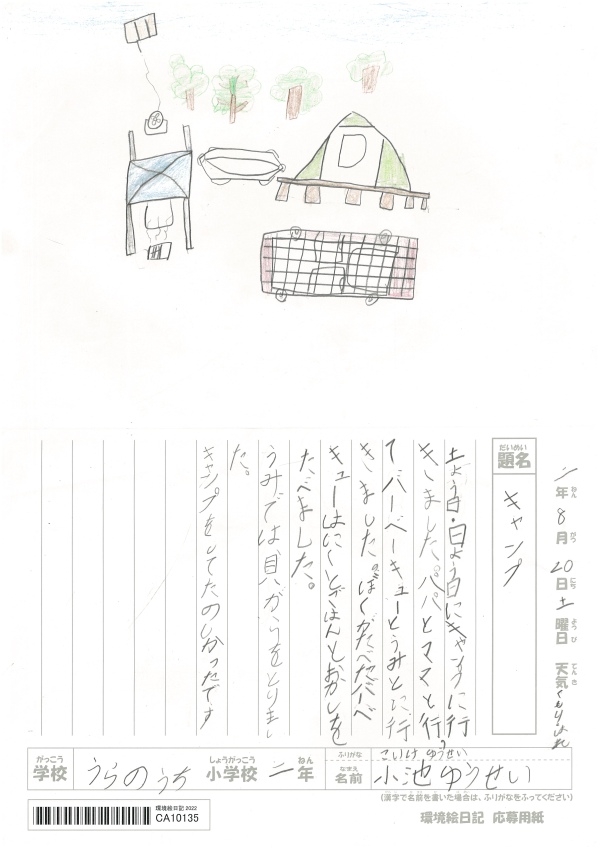 二年8月20日土曜日 天気くもりはれ
ねん がつ にち ようび てんき
だいめい
題名
キャンプ
土よう日・日よう日にキャンプに行
きました。パパとママと行っ
てバーベーキューとうみとに行
きました。ぼくがたべたバーベ
キューはにくとごはんとおかしを
たべました。
うみでは貝がらをとりまし
た。
キャンプをしてたのしかったです
がっこう
学校
うらのうち
しょうがっこう
小学校
二
ねん
年
ふりがな
こいけ ゆうせい
なまえ
名前
小池ゆうせい
(漢字で名前を書いた場合は、ふりがなをふってください)
環境絵日記 2022
CA10135
環境絵日記 応募用紙